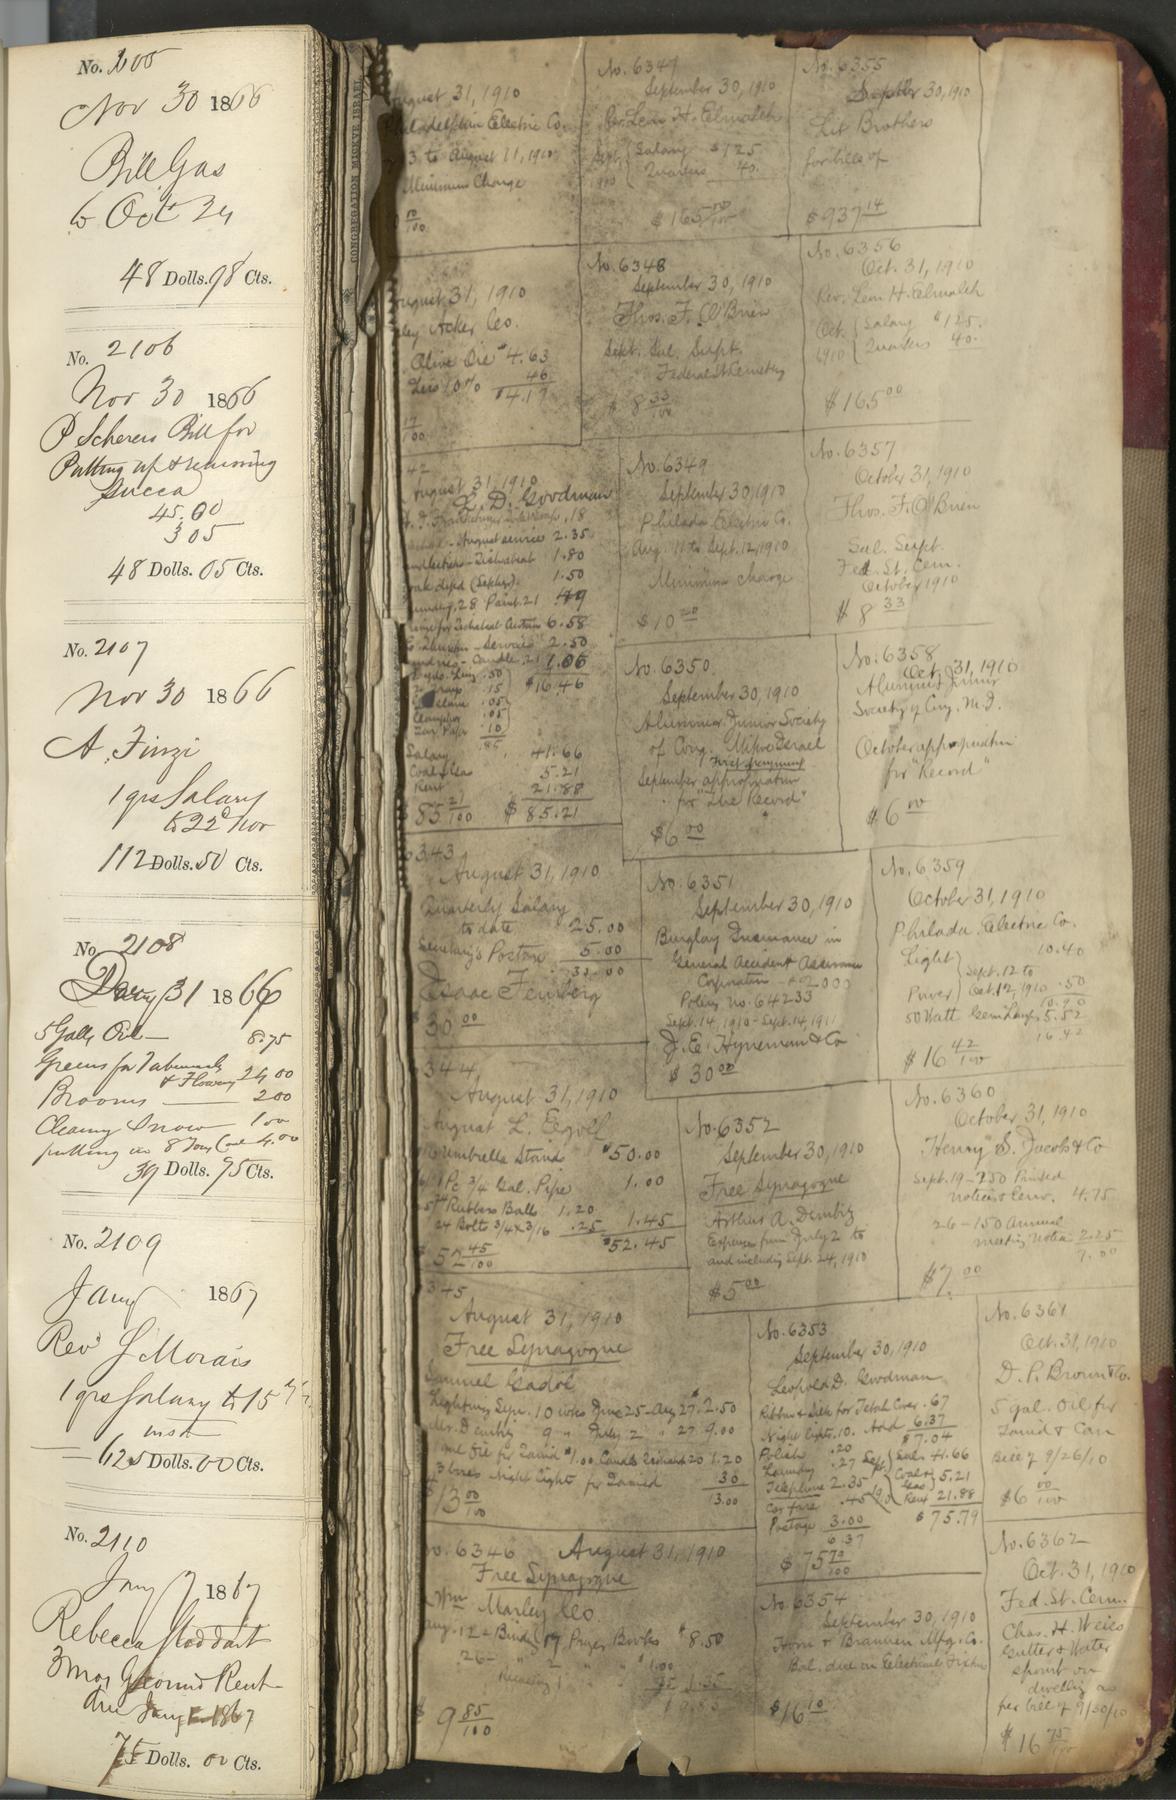 No. 2105
Nov 30 1866
Bill Gas
to Oct 24
48 Dolls. 98 Cts.
No. 2106
Nov 30 1866
P Scherers Bill for
Putting up & removing
Succa
45.00
3 05
48 Dolls. 05 Cts.
No. 2107
Nov 30 1866
A. Finzi
1 qrs Salary
to 22d Nov
112 Dolls. 50 Cts.
No. 2108
31 1866
5 Galls Oil — 8.75
Greens for Tabernacle
& Flowers 24 00
Brooms — 2 00
Cleaning Snow 1 00
putting in 8 Tons Coal 4.00
39 Dolls. 75 Cts.
No. 2109
Jany 1867
Revd S Morais
1 qrs Salary to 15th
inst
625 Dolls. 00 Cts.
No. 2110
Jany 7 1867
Rebecca Stoddart
3 mos Ground Rent
due Jany 1867
75 Dolls. 00 Cts.
CONGREGATION MICKVE ISRAEL
August 31, 1910
Philadelphia Electric Co.
3 to August 11, 1910
Minimum Charge
August 31, 1910
Acker Co.
Olive Oil $4.63
Less 10% 46
$4.17
42
August 31, 1910
L. D. Goodman
.18
August service 2.35
1.80
1.50
28 Paint .21 .49
6.58
Service 2.50
Candle 1.06
$16.46
.50
.15
.05
Camphor .05
.10
.85
Salary 41.66
Coal & Gas 5.21
Rent 21.88
85 21/100 $85.21
6343
August 31, 1910
Quarterly Salary
to date 25.00
Secretary's Postage 5.00
30.00
Isaac Feinberg
30 00
344
August 31, 1910
August L.
Umbrella Stand $50.00
1 Pc 3/4 Gal. Pipe 1.00
Rubber Balls 1.20
24 Bolts 3/4 x 3/16 .25 1.45
$52.45
$52 45/100
345
August 31, 1910
Free Synagogue
Samuel Gadol
Lighting Sept. 10 wks June 25-Aug 27 2.50
Mr. Dembitz 9 " July 2 " 27 9.00
Oil for Tamid $1.00 Candle 20 1.20
3 boxes Night Lights for Tamid 30
13.00
$13 00/100
No. 6346 August 31, 1910
Free Synagogue
Wm Marley Co.
Aug. 12 - Binding 17 Prayer Books $8.50
26 - " " " $1.00
1.35
9.85
$9 85/100
No. 6347
September 30, 1910
Rev. Leon H. Elmaleh
Sept. 1910 { Salary $125
Quarters 40.
$165 00/100
No. 6348
September 30, 1910
Thos. F. O'Brien
Sept. Sal. Supt.
Federal St Cemetery
$8 33/100
No. 6349
September 30, 1910
Philada Electric Co.
Aug. 11 to Sept. 12, 1910
Minimum charge
$10 00
No. 6350
September 30, 1910
Alumni Junior Society
of Cong. Mikve Israel
First payment
September appropriation
for "The Record"
$6 00
No. 6351
September 30, 1910
Burglary Insurance in
General Accident Assurance
Corporation - $2000
Policy no. 64233
Sept. 14, 1910 - Sept. 14, 1911
J. E. Hyneman & Co
$30 00
No. 6352
September 30, 1910
Free Synagogue
Arthur A. Dembitz
Expenses from July 2 to
and including Sept. 24, 1910
$5 00
No. 6353
September 30, 1910
Leopold D. Goodman
Ribbon & Silk for Tebah Cover .67
Night lights .10 Add 6.37
$7.04
Polish .20
Laundry .27
Telephone 2.35
Car fare .45
Postage 3.00
6.37
Sept. 1910 { Sal. 41.66
Coal & Gas 5.21
Rent 21.88
$75.79
$75 79/100
No. 6354
September 30, 1910
Horn & Brannen Mfg. Co.
Bal. due on Electrical Fixtures
$16 10
No. 6355
September 30, 1910
Lit Brothers
for bills of
$937 14
No. 6356
Oct. 31, 1910
Rev. Leon H. Elmaleh
Oct. 1910 { Salary $125.
Quarters 40.
$165 00
No. 6357
October 31, 1910
Thos. F. O'Brien
Sal. Supt.
Fed. St. Cem.
October 1910
$8 33
No. 6358
Oct. 31, 1910
Alumni Junior
Society of Cong. M. I.
October appropriation
for "Record"
$6 00
No. 6359
October 31, 1910
Philada. Electric Co.
Light } 10.40
Sept. 12 to
Power } Oct. 12, 1910 .50
10.90
50 Watt Gem Lamps 5.52
16.42
$16 42/100
No. 6360
October 31, 1910
Henry S. Jacobs & Co
Sept. 19 - 250 Printed
notices & Env. 4.75
26 - 150 Annual
meeting notices 2.25
7.00
$7. 00
No. 6361
Oct. 31, 1910
D. P. Brown & Co.
5 gal. Oil for
Tamid & Can
Bill of 9/26/10
$6 00/100
No. 6362
Oct. 31, 1910
Fed. St. Cem.
Chas. H. Weiss
Gutter & Water
spout on
dwelling as
per bill of 9/30/10
$16 75/100